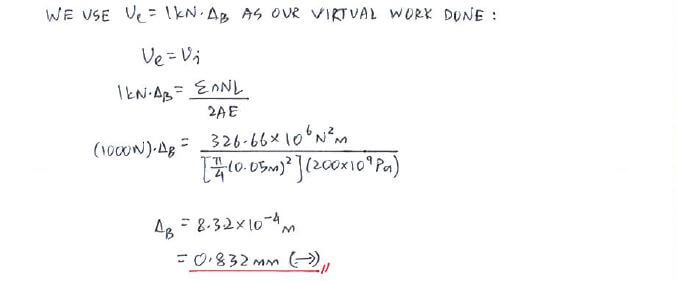 WE USE Ue = 1kN·ΔB AS OUR VIRTUAL WORK DONE :
Ue = Ui
1kN·ΔB = ΣnNL / 2AE
(1000N)·ΔB = 326.66×10⁶ N²m / [π/4 (0.05m)²](200×10⁹Pa)
ΔB = 8.32×10⁻⁴ m
= 0.832 mm (→)//